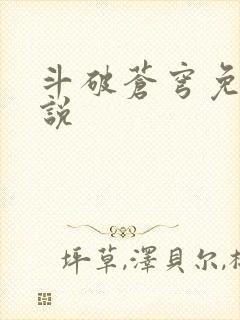 斗破蒼穹免
說
坪草,澤貝尔,